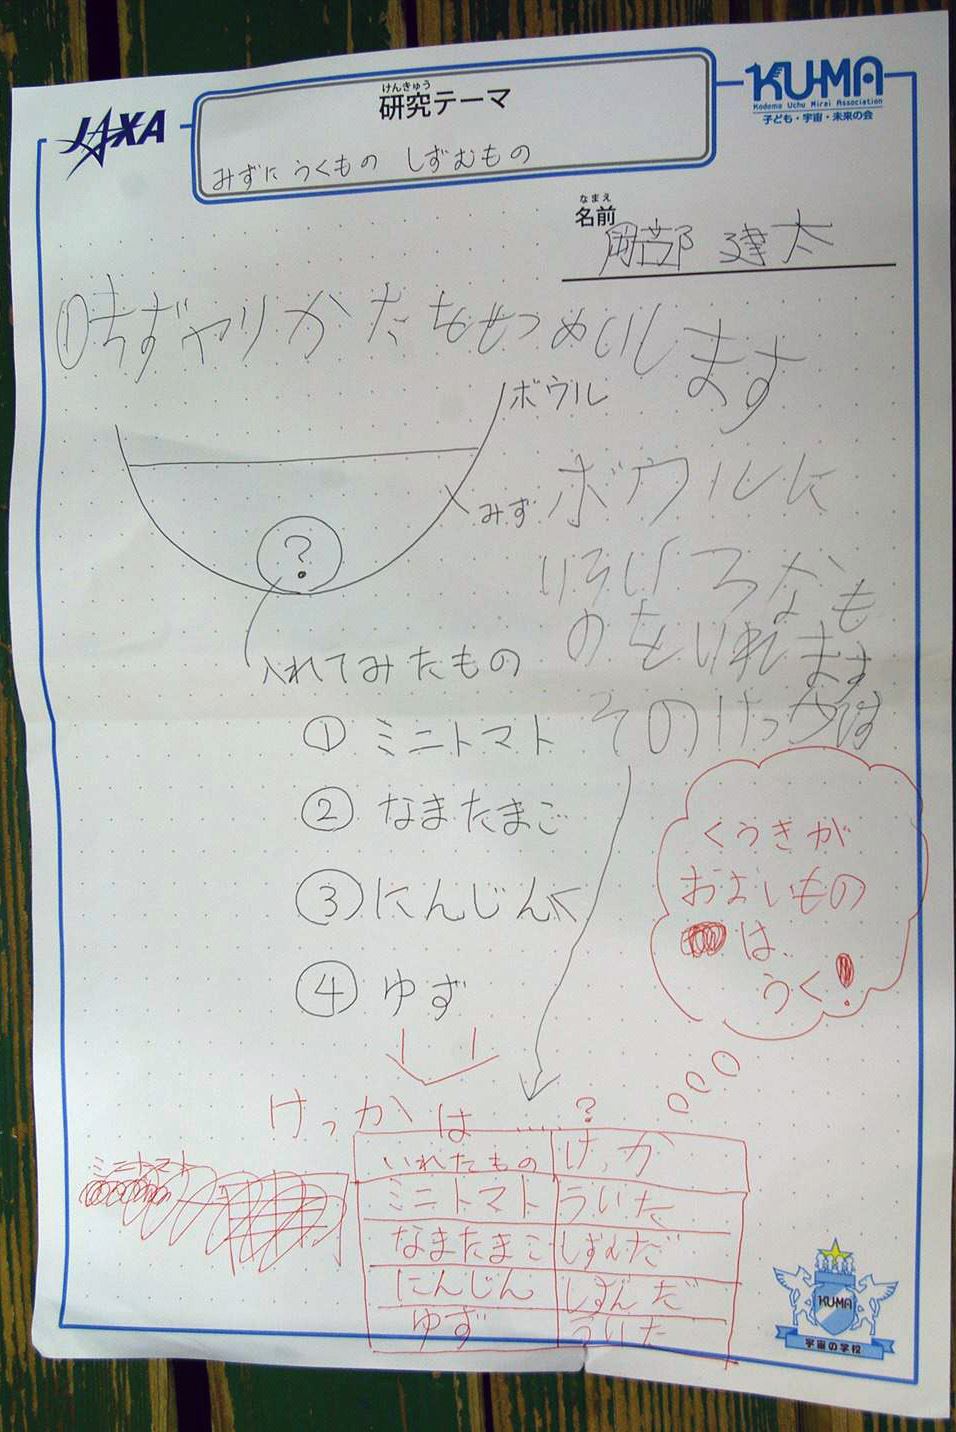 JAXA
けんきゅう
研究テーマ
みずに うくもの しずむもの
KU-MA
Kodomo Uchu Mirai Association
子ども・宇宙・未来の会
なまえ
名前
岡部 建太
まずやりかたをせつめいします
ボウル
みず
?
ボウルに
いろいろなも
のをいれます
そのけっかは
入れてみたもの
① ミニトマト
② なまたまご
③ にんじん
④ ゆず
くうきが
おおいもの
は、
うく
けっかは……?
いれたもの けっか
ミニトマト ういた
なまたまご しずんだ
にんじん しずんだ
ゆず ういた
KU-MA
宇宙の学校